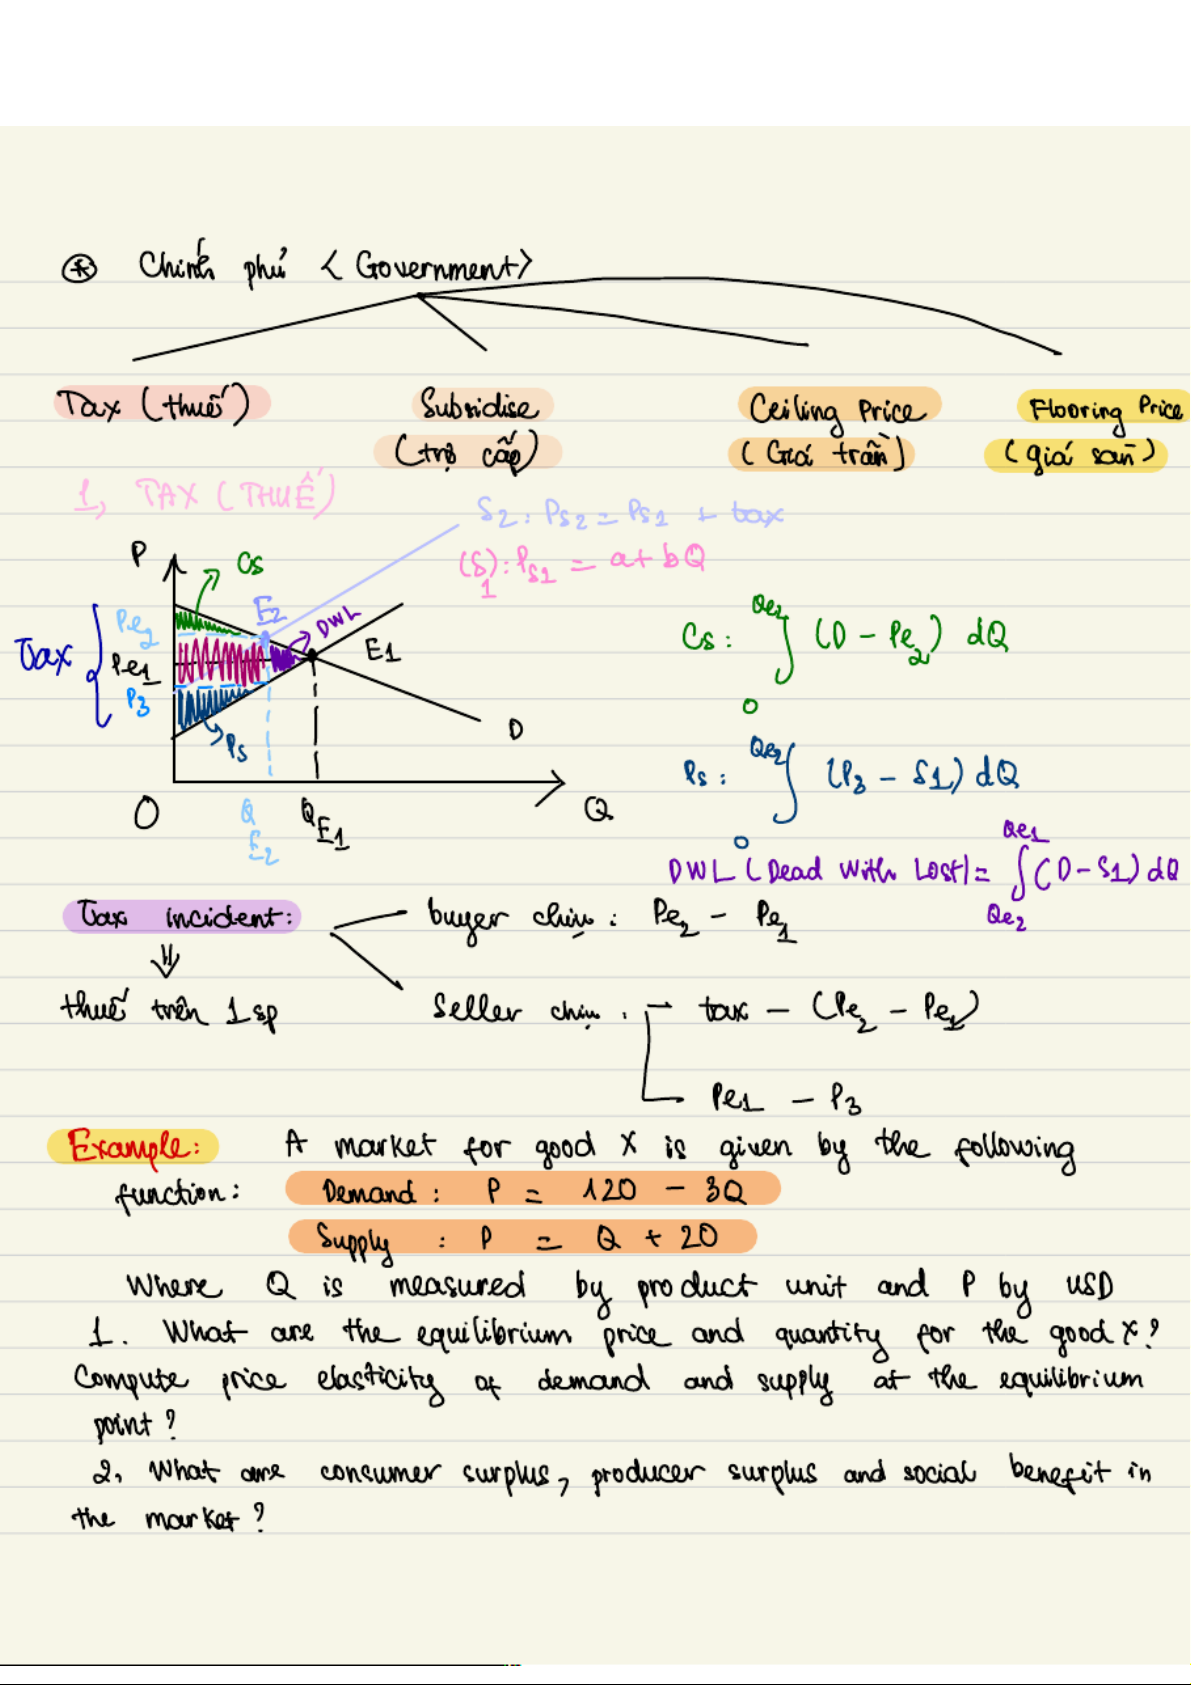 ⊛ Chính phủ < Government>
Tax (thuế)
Subsidise
(trợ cấp)
Ceiling Price
(Giá trần)
Flooring Price
(giá sàn)
1, TAX (THUẾ)
S2: Ps2 = Ps1 + tax
(S1): Ps1 = a + bQ
P
Cs
E2
DWL
E1
Pe2
Tax
Pe1
P3
Ps
D
O
Q
QE2
QE1
Cs: ∫0^Qe2 (D - Pe2) dQ
Ps: ∫0^Qe2 (P3 - S1) dQ
DWL (Dead With Lost) = ∫Qe2^Qe1 (D - S1) dQ
Tax incident:
buyer chịu: Pe2 - Pe1
⇓
thuế trên 1sp
Seller chịu: - tax - (Pe2 - Pe1)
- Pe1 - P3
Example: A market for good X is given by the following
function: Demand: P = 120 - 3Q
Supply : P = Q + 20
Where Q is measured by product unit and P by USD
1. What are the equilibrium price and quantity for the good X?
Compute price elasticity of demand and supply at the equilibrium
point?
2, What are consumer surplus, producer surplus and social benefit in
the market?